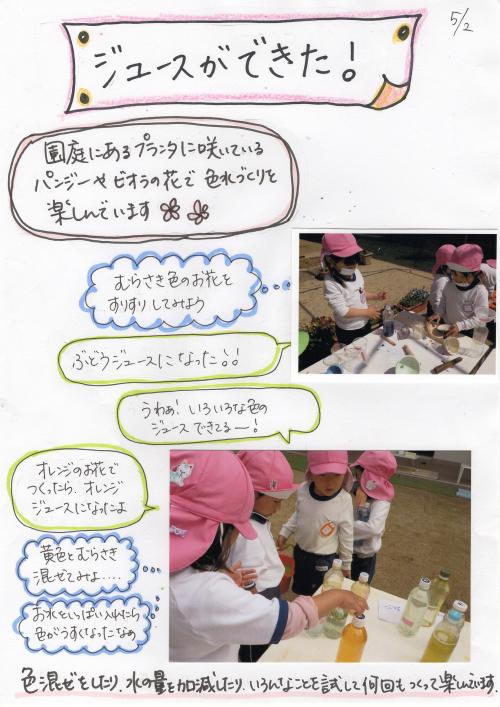 5/2
ジュースができた!
園庭にあるプランタに咲いている
パンジーやビオラの花で色水づくりを
楽しんでいます
むらさき色のお花を
すりすりしてみよう
ぶどうジュースになった!!
うわぁ!いろいろな色の
ジュースできてるー!
オレンジのお花で
つくったら、オレンジ
ジュースになったよ
黄色とむらさき
混ぜてみよ....
お水をいっぱい入れたら
色がうすくなったなぁ
色混ぜをしたり、水の量を加減したり、いろんなことを試して何回もつくって楽しんでいます。